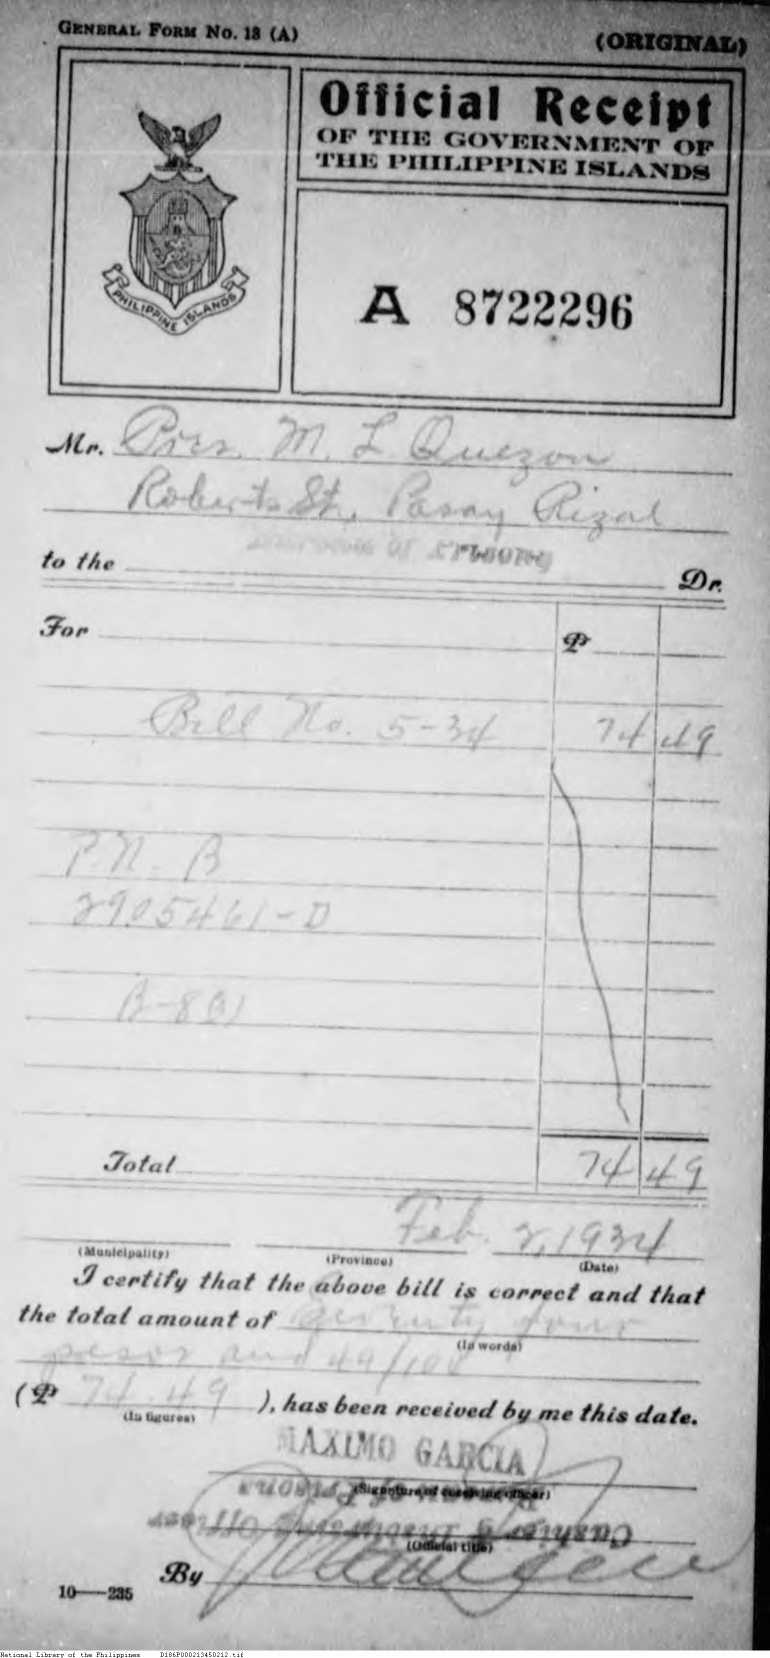 GENERAL FORM NO. 13 (A)
(ORIGINAL)
Official Receipt
OF THE GOVERNMENT OF
THE PHILIPPINE ISLANDS
PHILIPPINE ISLANDS
A 8722296
Mr. Pres. M. L. Quezon
Roberts St., Pasay Rizal
to the Dr.
For ₱
Bill No. 5-34 74 49
P.N. B
2905461-D
Total 74 49
Feb. 2, 1934
(Municipality) (Province) (Date)
I certify that the above bill is correct and that
the total amount of Seventy four
(In words)
pesos and 49/100
(₱ 74.49 ), has been received by me this date.
(In figures)
MAXIMO GARCIA
(Signature of receiving officer)
Bureau of Prisons
Cashier & Disbursing Officer
(Official title)
By
10—235
National Library of the Philippines D186P000213450212.tif